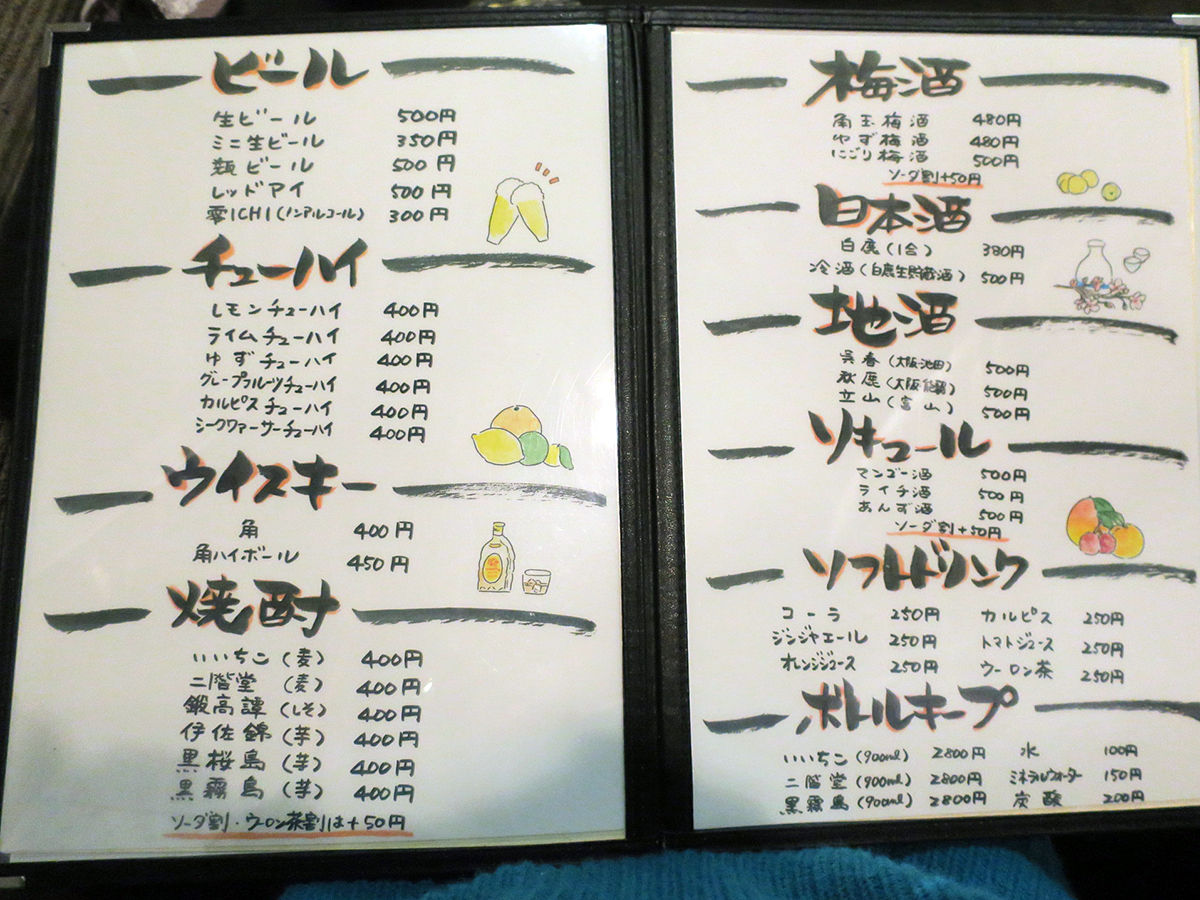 ビール
生ビール 500円
ミニ生ビール 350円
瓶ビール 500円
レッドアイ 500円
零ICHI(ノンアルコール) 300円
チューハイ
レモンチューハイ 400円
ライムチューハイ 400円
ゆずチューハイ 400円
グレープフルーツチューハイ 400円
カルピスチューハイ 400円
シークワァーサーチューハイ 400円
ウイスキー
角 400円
角ハイボール 450円
焼酎
いいちこ(麦) 400円
二階堂(麦) 400円
鍛高譚(しそ) 400円
伊佐錦(芋) 400円
黒桜島(芋) 400円
黒霧島(芋) 400円
ソーダ割・ウーロン茶割は+50円
梅酒
角玉梅酒 480円
ゆず梅酒 480円
にごり梅酒 500円
ソーダ割+50円
日本酒
白鹿(1合) 380円
冷酒(白鹿生貯蔵酒) 500円
地酒
呉春(大阪池田) 500円
秋鹿(大阪能勢) 500円
立山(富山) 500円
リキュール
マンゴー酒 500円
ライチ酒 500円
あんず酒 500円
ソーダ割+50円
ソフトドリンク
コーラ 250円 カルピス 250円
ジンジャエール 250円 トマトジュース 250円
オレンジジュース 250円 ウーロン茶 250円
ボトルキープ
いいちこ(900ml) 2800円 水 100円
二階堂(900ml) 2800円 ミネラルウォーター 150円
黒霧島(900ml) 2800円 炭酸 200円